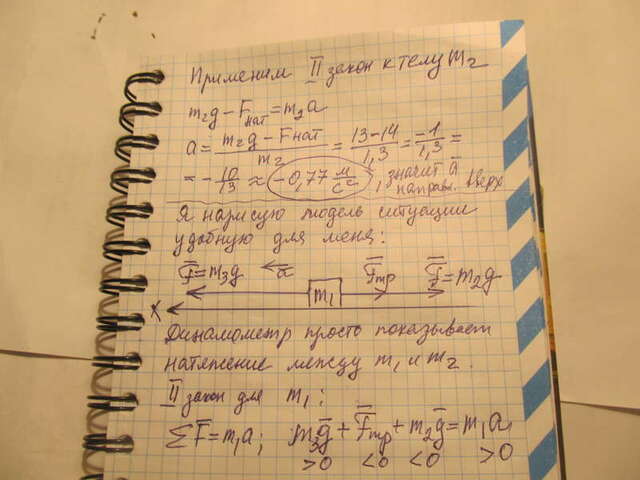 Применим II закон к телу m₂
m₂g − Fнат = m₂a
a = (m₂g − Fнат)/m₂ = (13−14)/1,3 = −1/1,3 =
= − 10/13 ≈ −0,77 м/с², значит a̅ направл. вверх
Я нарисую модель ситуации
удобную для меня:
F̅=m₃g ← a̅ m₁ F̅тр F̅=m₂g
X
Динамометр просто показывает
натяжение между m₁ и m₂.
II закон для m₁:
∑F̅=m₁a; m₃g̅ + F̅тр + m₂g̅ = m₁a
>0 <0 <0 >0